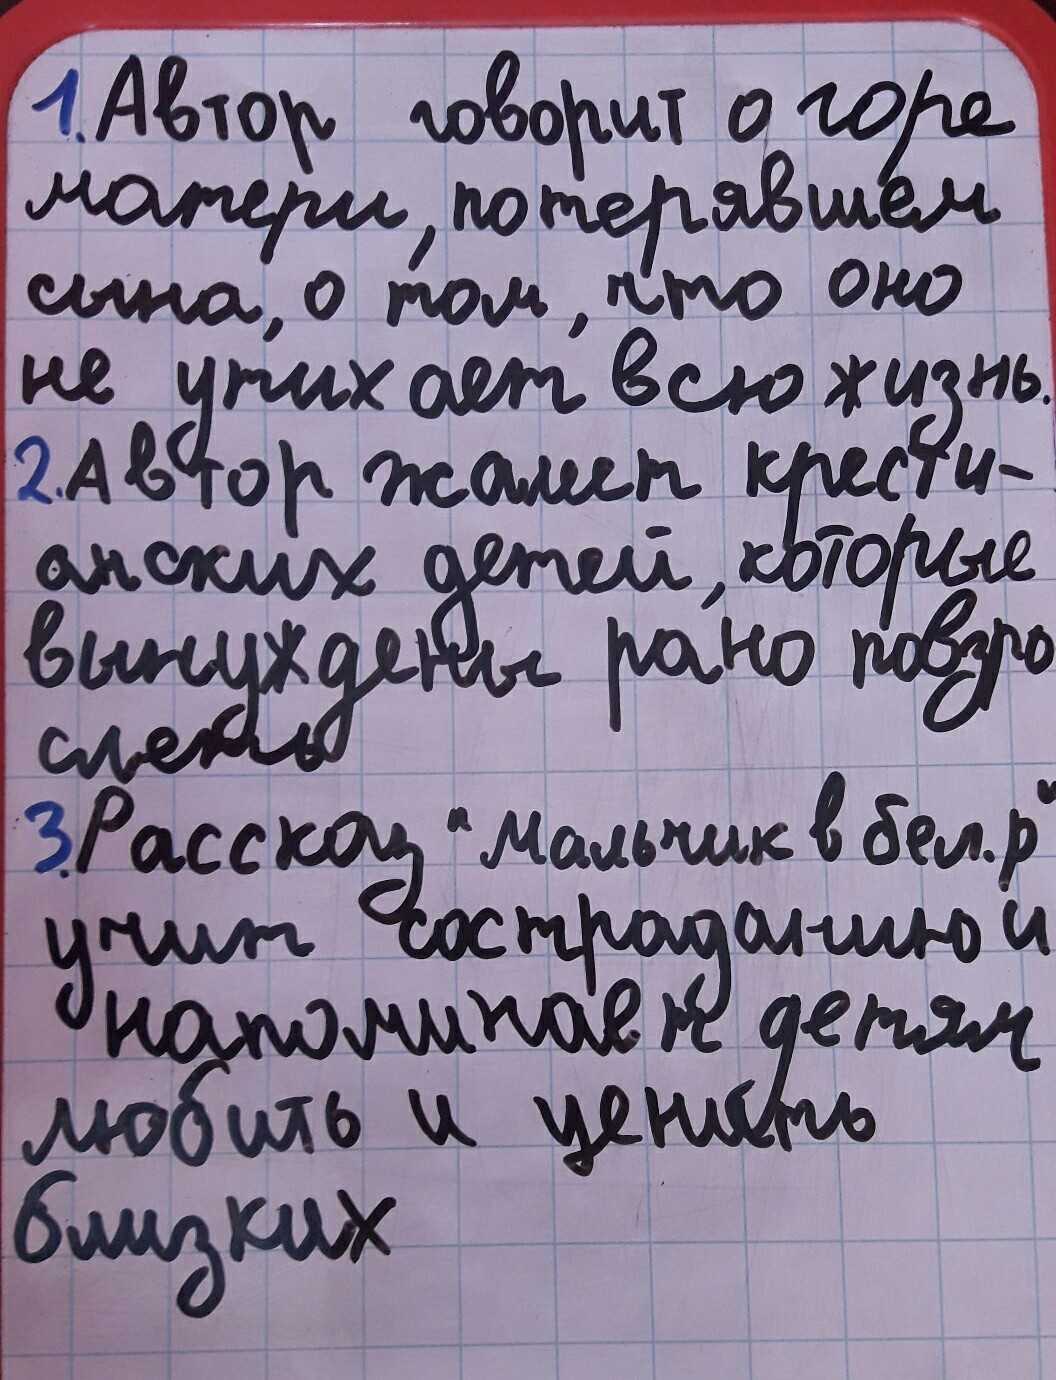 1. Автор говорит о горе
матери, потерявшем
сына, о том, что оно
не утихает всю жизнь.
2. Автор жалеет крести-
анских детей, которые
вынуждены рано повзро
слеть
3. Рассказ "Мальчик в бел. р"
учит состраданию и
напоминает детям
любить и ценить
близких